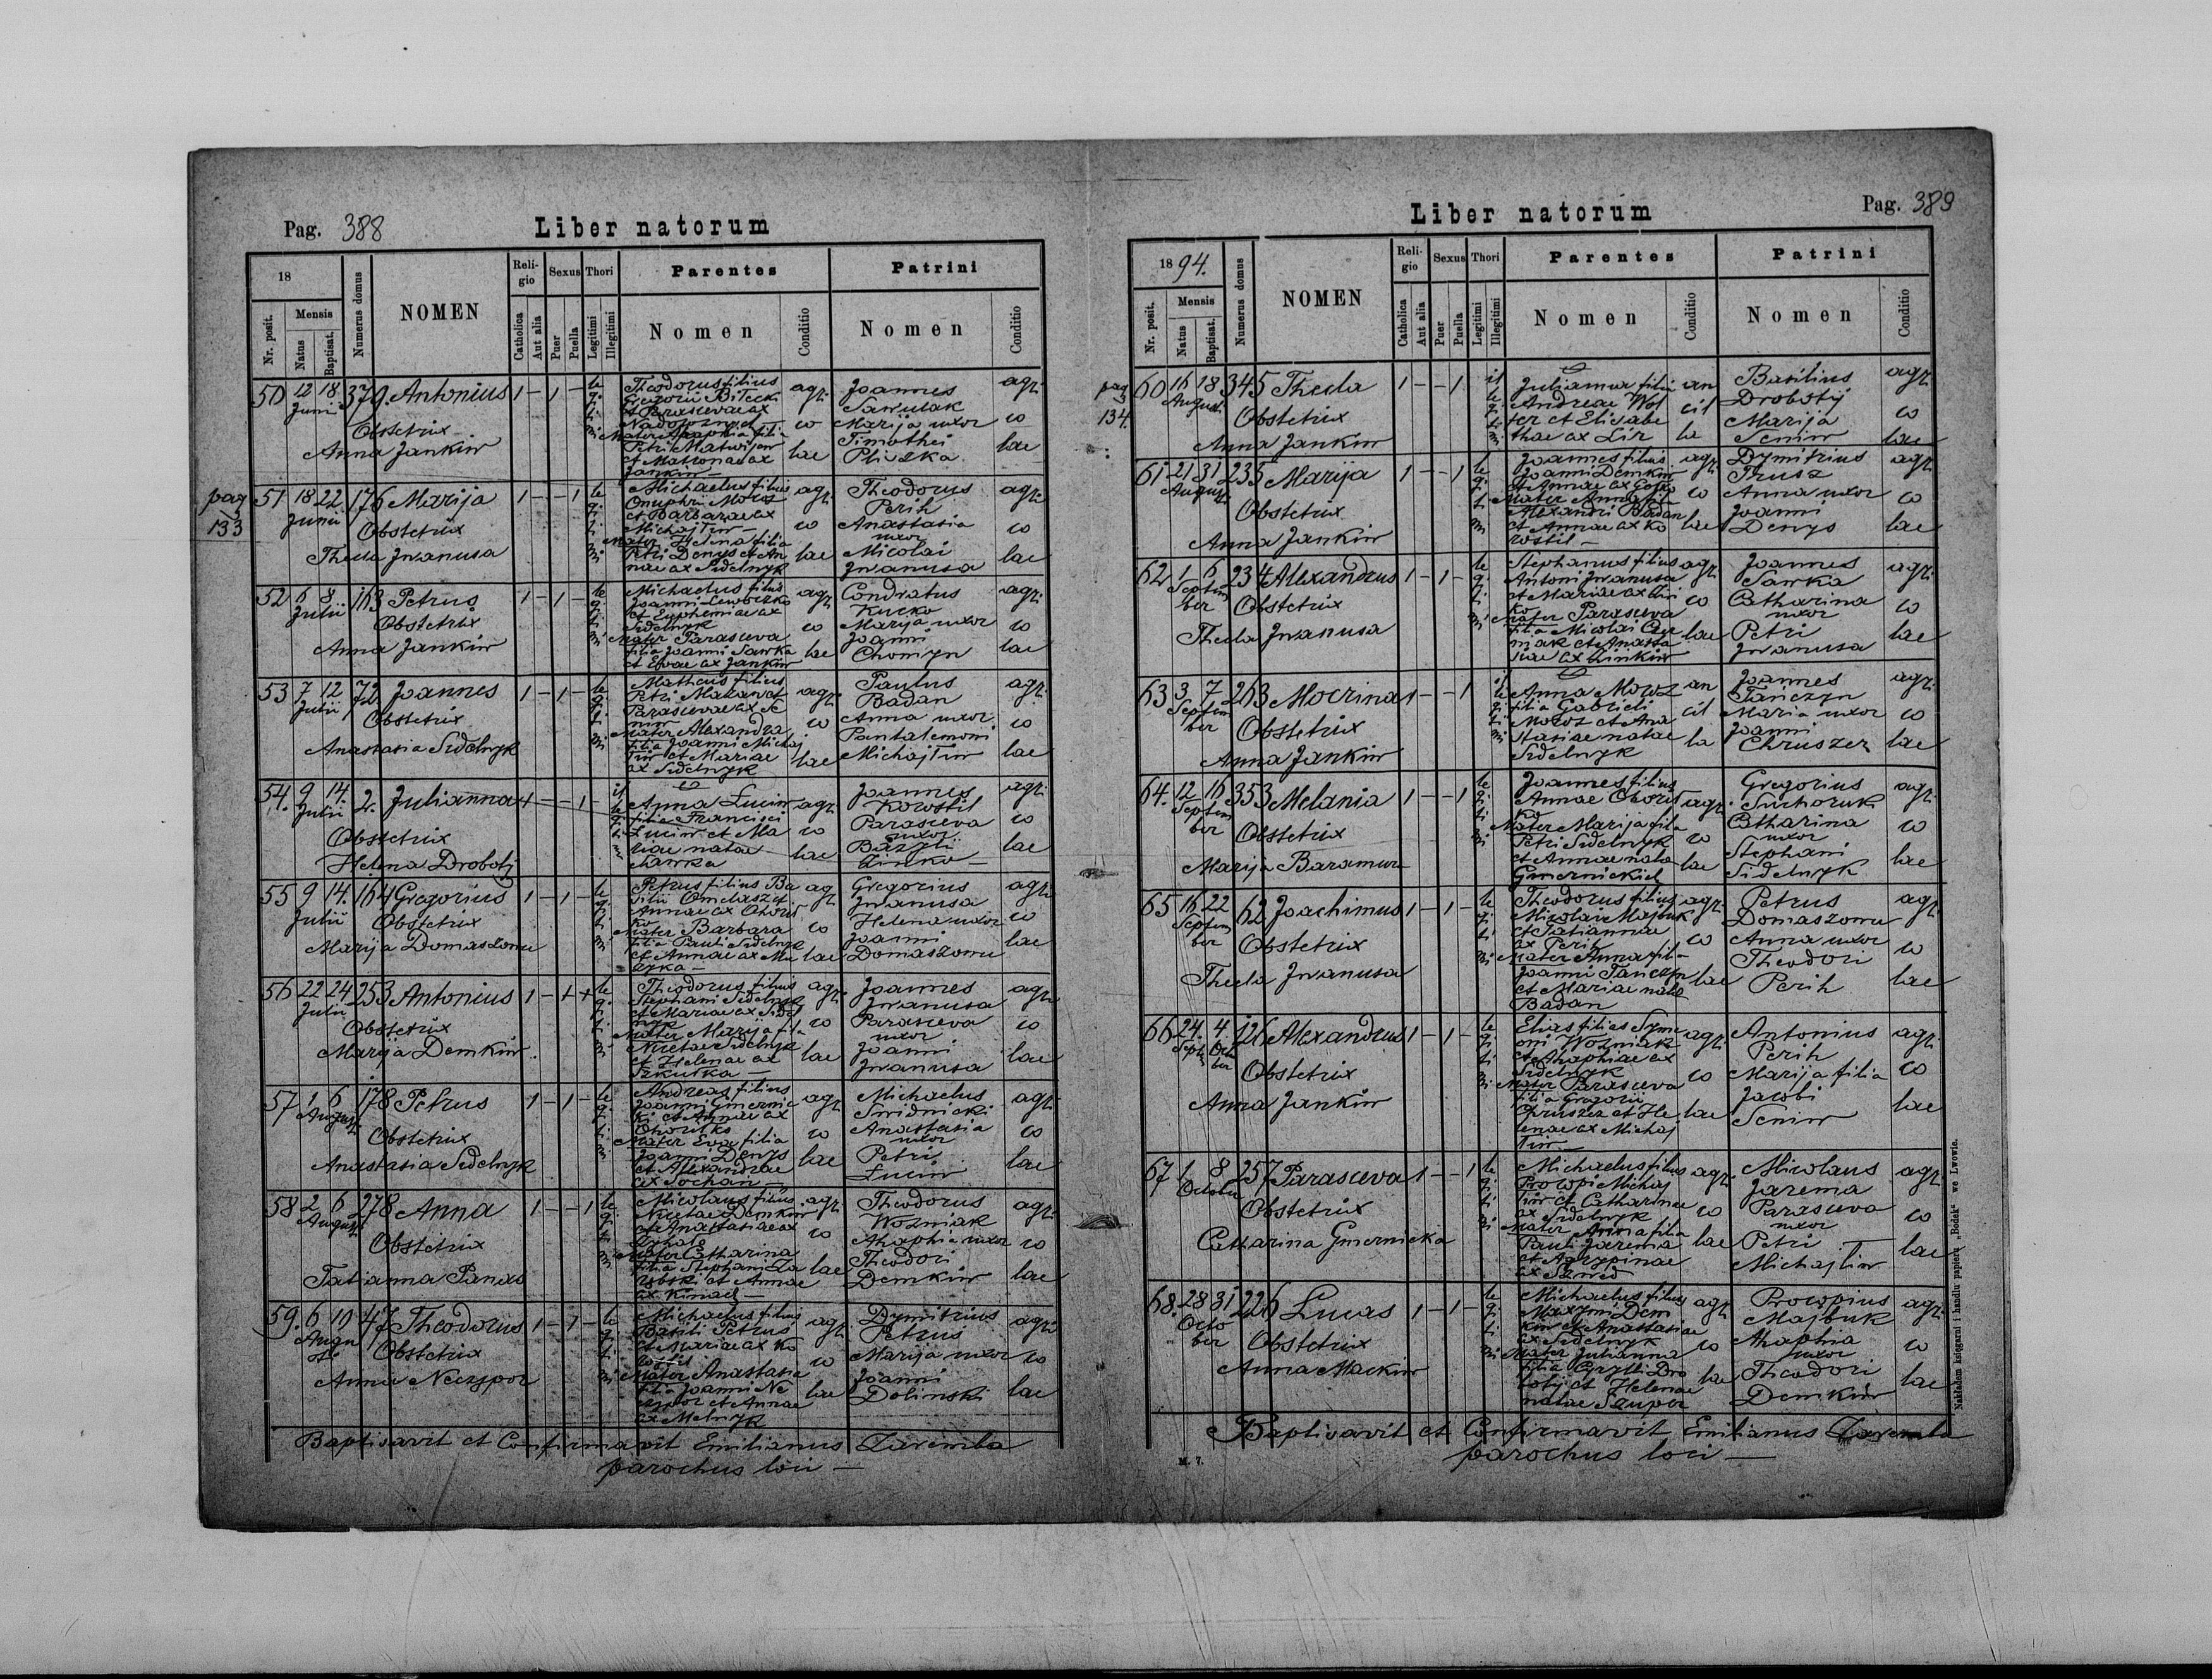 Pag. 388
Liber natorum
18
Nr. posit.
Mensis
Natus
Baptisat.
Numerus domus
NOMEN
Religio
Catholica
Aut alia
Sexus
Puer
Puella
Thori
Legitimi
Illegitimi
Parentes
Nomen
Conditio
Patrini
Nomen
Conditio
50 12 18 379. Antonius 1 – 1 –
Junii
Obstetrix
Anna Jankiw
legitimi
Theodorus filius
Gregorii Bileck
et Parascevae ex
Mater Ahaphia filia
Petri Matwijow
et Matronae ex
Jankiw
agricolae
Joannes
Sawulak
Marija uxor
Timothei
Pliszka
agricolae
pag 133
51 18 22 176 Marija 1 – – 1
Junii
Obstetrix
Thecla Iwanusa
legitimi
Michaelus filius
Onuphrii Moroz
et Barbarae ex
Michajliw –
Mater Helena filia
Petri Denys et An
nae ex Sidelnyk
agricolae
Theodorus
Perih
Anastasia
uxor
Nicolai
Iwanusa
agricolae
52 6 8 163 Petrus 1 – 1 –
Julii
Obstetrix
Anna Jankiw
legitimi
Michaelus filius
Joanni Lewoczko
et Euphemiae ex
Sidelnyk
Mater Parasceva
filia Joanni Sawka
et Evae ex Jankiw
agricolae
Condratus
Kucko
Marija uxor
Joanni
Chomyn
agricolae
53 7 12 72 Joannes 1 – 1 –
Julii
Obstetrix
Anastasia Sidelnyk
legitimi
Matheus filius
Petri Mazar et
Parascevae ex Se
niw
Mater Alexandra
filia Joanni Michaj
liw et Mariae
ex Sidelnyk
agricolae
Paulus
Badan
Anna uxor
Pantalemoni
Michajliw
agricolae
54. 9 14. 2. Julianna 1 – – 1
Julii
Obstetrix
Helena Drobotij
illegitimi
Anna Luciw
filia Francisci
Luciw et Ma
riae natae
Hawka
agricolae
Joannes
Korostil
Parasceva
uxor
Bazylii
Zinko –
agricolae
55 9 14. 164 Gregorius 1 – 1 –
Julii
Obstetrix
Marija Domaszowu
legitimi
Petrus filius Ba
silii Omelasz et
Annae ex Chorit
ko
Mater Barbara
filia Pauli Sidelnyk
et Annae ex Mu
zyka –
agricolae
Gregorius
Iwanusa
Helena uxor
Joanni
Domaszowu
agricolae
56 22 24 253 Antonius 1 –
Julii
Obstetrix
Marija Demkiw
legitimi
Theodorus filius
Stephani Sidelnyk
et Mariae ex Sidel
nyk
Mater Marija filia
Nicetae Sidelnyk
et Helenae ex
Szkutka –
agricolae
Joannes
Iwanusa
Parasceva
uxor
Joanni
Iwanusa
agricolae
57 1 6 178 Petrus 1 – 1 –
August
Obstetrix
Anastasia Sidelnyk
legitimi
Andreas filius
Joanni Gmernic
ki et Annae ex
Choritko
Mater Eva filia
Joanni Denys
et Alexandrae
ex Sochan –
agricolae
Michaelus
Smidnicki
Anastasia
uxor
Petri
Luciw
agricolae
58 2 6 278 Anna 1 – – 1
August
Obstetrix
Tatianna Panas
legitimi
Nicolaus filius
Nicetae Demkiw
et Anastasiae ex
Mater Catharina
filia Stephani Za
robski et Annae
ex Kinach –
agricolae
Theodorus
Wozniak
Ahaphia uxor
Theodori
Demkiw
agricolae
59. 6 10 47 Theodorus 1 – 1 –
Augu
st
Obstetrix
Anna Neczypor
legitimi
Michaelus filius
Basili Petrus
et Mariae ex Ko
rostil
Mater Anastasia
filia Joanni Ne
czypor et Annae
ex Melnyk
agricolae
Dymitrius
Petrus
Marija uxor
Joanni
Dolinski
agricolae
Baptisavit et Confirmavit Emilianus Zaremba
parochus loci –
Pag. 389
Liber natorum
18 94.
Nr. posit.
Mensis
Natus
Baptisat.
Numerus domus
NOMEN
Religio
Catholica
Aut alia
Sexus
Puer
Puella
Thori
Legitimi
Illegitimi
Parentes
Nomen
Conditio
Patrini
Nomen
Conditio
pag 134.
60 16 18 345 Thecla 1 – – 1
August
Obstetrix
Anna Jankiw
illegitimi
Julianna filia
Andreae Wol
ter et Elisabe
thae ex Lir
ancilla
Basilius
Drobotij
Marija
Seniw
agricolae
61 21 31 235 Marija 1 – – 1
August
Obstetrix
Anna Jankiw
legitimi
Joannes filius
Joanni Demkiw
et Annae ex
Mater Anna fil
Alexandri Badan
et Annae ex Ko
rostil –
agricolae
Dymitrius
Trusz
Anna uxor
Joanni
Denys
agricolae
62 1 6 234 Alexandrus 1 – 1 –
Septem
ber
Obstetrix
Thecla Iwanusa
legitimi
Stephanus filius
Antoni Iwanusa
et Mariae ex Zin
ko
Mater Parasceva
filia Nicolai Czer
niak et Anasta
siae ex Zinkiw
agricolae
Joannes
Sawka
Catharina
uxor
Petri
Iwanusa
agricolae
63 3 7 263 Mocrina 1 – – 1
Septem
ber
Obstetrix
Anna Jankiw
illegitimi
Anna Moroz
filia Gabrieli
Moroz et Ana
stasiae natae
Sidelnyk
ancilla
Joannes
Tanczyn
Maria uxor
Joanni
Chruszcz
agricolae
64. 12 16 353 Melania 1 – – 1
Septem
ber
Obstetrix
Marija Baramura
legitimi
Joannes filius
Annae Chorit
ko
Mater Marija filia
Petri Sidelnyk
et Annae nata
Gmernickich
agricolae
Gregorius
Suchoruk
Catharina
uxor
Stephani
Sidelnyk
agricolae
65 16 22 62 Joachimus 1 – 1 –
Septem
ber
Obstetrix
Thecla Iwanusa
legitimi
Theodorus filius
Nicolai Majbuk
et Tatiannae
ex Perih
Mater Anna fil –
Joanni Tanczyn
et Mariae nata
Badan
agricolae
Petrus
Domaszowu
Anna uxor
Theodori
Perih
agricolae
66 24. 4 126 Alexandrus 1 – 1 –
Septe Octo
ber
Obstetrix
Anna Jankiw
legitimi
Elias filius Syme
oni Wozniak
et Ahaphiae ex
Sidelnyk
Mater Parasceva
filia Gregorii
Chruszcz et He
lenae ex Michaj
liw –
agricolae
Antonius
Perih
Marija filia
Jacobi
Seniw
agricolae
67 1 8 257 Parasceva 1 – – 1
October
Obstetrix
Catharina Gmernicka
legitimi
Michaelus filius
Procopi Michaj
liw et Catharinae
ex Sidelnyk
Mater Anna filia
Pauli Jarema
et Agrypinae
ex Szwed
agricolae
Nicolaus
Jarema
Parasceva
uxor
Petri
Michajliw
agricolae
68. 28 31 226 Lucas 1 – 1 –
Octo
ber
Obstetrix
Anna Mackiw
legitimi
Michaelus filius
Maxymi Dem
kiw et Anastasiae
ex Sidelnyk
Mater Julianna
filia Cyrylli Dro
botij et Helenae
natae Szuper
agricolae
Procopius
Majbuk
Ahaphia
uxor
Theodori
Demkiw
agricolae
Baptisavit et Confirmavit Emilianus Zaremba
parochus loci –
M. 7.
Nakładem księgarni i handlu papieru „Bodek“ we Lwowie.